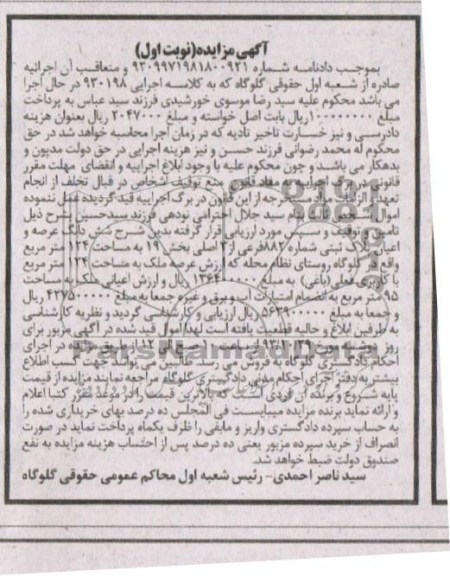 آگهی مزایده(نوبت اول)
بموجب دادنامه شماره ۹۳۰۹۹۷۱۹۸۱۸۰۰۹۲۱ و متعاقب آن اجرائیه
صادره از شعبه اول حقوقی گلوگاه که به کلاسه اجرایی ۹۳۰۱۹۸ در حال اجرا
می باشد محکوم علیه سید رضا موسوی خورشیدی فرزند سید عباس به پرداخت
مبلغ ۱۰۰۰۰۰۰۰۰ ریال بابت اصل خواسته و مبلغ ۲۰۴۷۰۰۰ ریال بعنوان هزینه
دادرسی و نیز خسارت تاخیر تادیه که در زمان اجرا محاسبه خواهد شد در حق
محکوم له محمد رضوانی فرزند حسن و نیز هزینه اجرایی در حق دولت مدیون و
بدهکار می باشند و چون محکوم علیه با وجود ابلاغ اجراییه و انقضای مهلت مقرر
قانونی در برگ اجراییه مفاد قانون منع توقیف اشخاص در قبال تخلف از انجام
تعهدات و الزامات مالی مندرجه از این قانون در برگ اجراییه قید گردیده عمل ننموده
اموال سید جلال احترامی نودهی فرزند سیدحسین بشرح ذیل
تامین و توقیف و سپس مورد ارزیابی قرار گرفته بدین شرح شش دانگ عرصه و
اعیان پلاک ثبتی شماره ۸۸۲ فرعی از ۳ اصلی بخش ۱۹ به مساحت ۱۲۴ متر مربع
واقع در گلوگاه روستای نظام محله که ارزش عرصه ملک به مساحت ۱۲۴ متر مربع
با کاربری فعلی (باغی) به مبلغ ریال و ارزش اعیانی ملک به مساحت
۹۵ متر مربع به انضمام امتیازات آب و برق و غیره جمعا به مبلغ ۴۲۷۵۰۰۰۰۰ ریال
و جمعا به مبلغ ۵۶۳۹۰۰۰۰۰ ریال ارزیابی و کارشناسی گردید و نظریه کارشناسی
به طرفین ابلاغ و حالیه قطعیت یافته است لهذا اموال قید شده در آگهی مزبور برای
روز دوشنبه ساعت ۱۰ صبح الی ۱۲ از طریق مزایده در اجرای
احکام دادگستری گلوگاه به فروش می رسد طالبین می توانند جهت کسب اطلاع
بیشتر به دفتر اجرای احکام مدنی دادگستری گلوگاه مراجعه نمایند مزایده از قیمت
پایه شروع و برنده آن فردی است که بالاترین قیمت را در موعد مقرر کتبا اعلام
و ارائه نماید برنده مزایده میبایست فی المجلس ده درصد بهای خریداری شده را
به حساب سپرده دادگستری واریز و مابقی را ظرف یکماه پرداخت نماید در صورت
انصراف از خرید سپرده مزبور یعنی ده درصد پس از احتساب هزینه مزایده به نفع
صندوق دولت ضبط خواهد شد.
سید ناصر احمدی- رئیس شعبه اول محاکم عمومی حقوقی گلوگاه